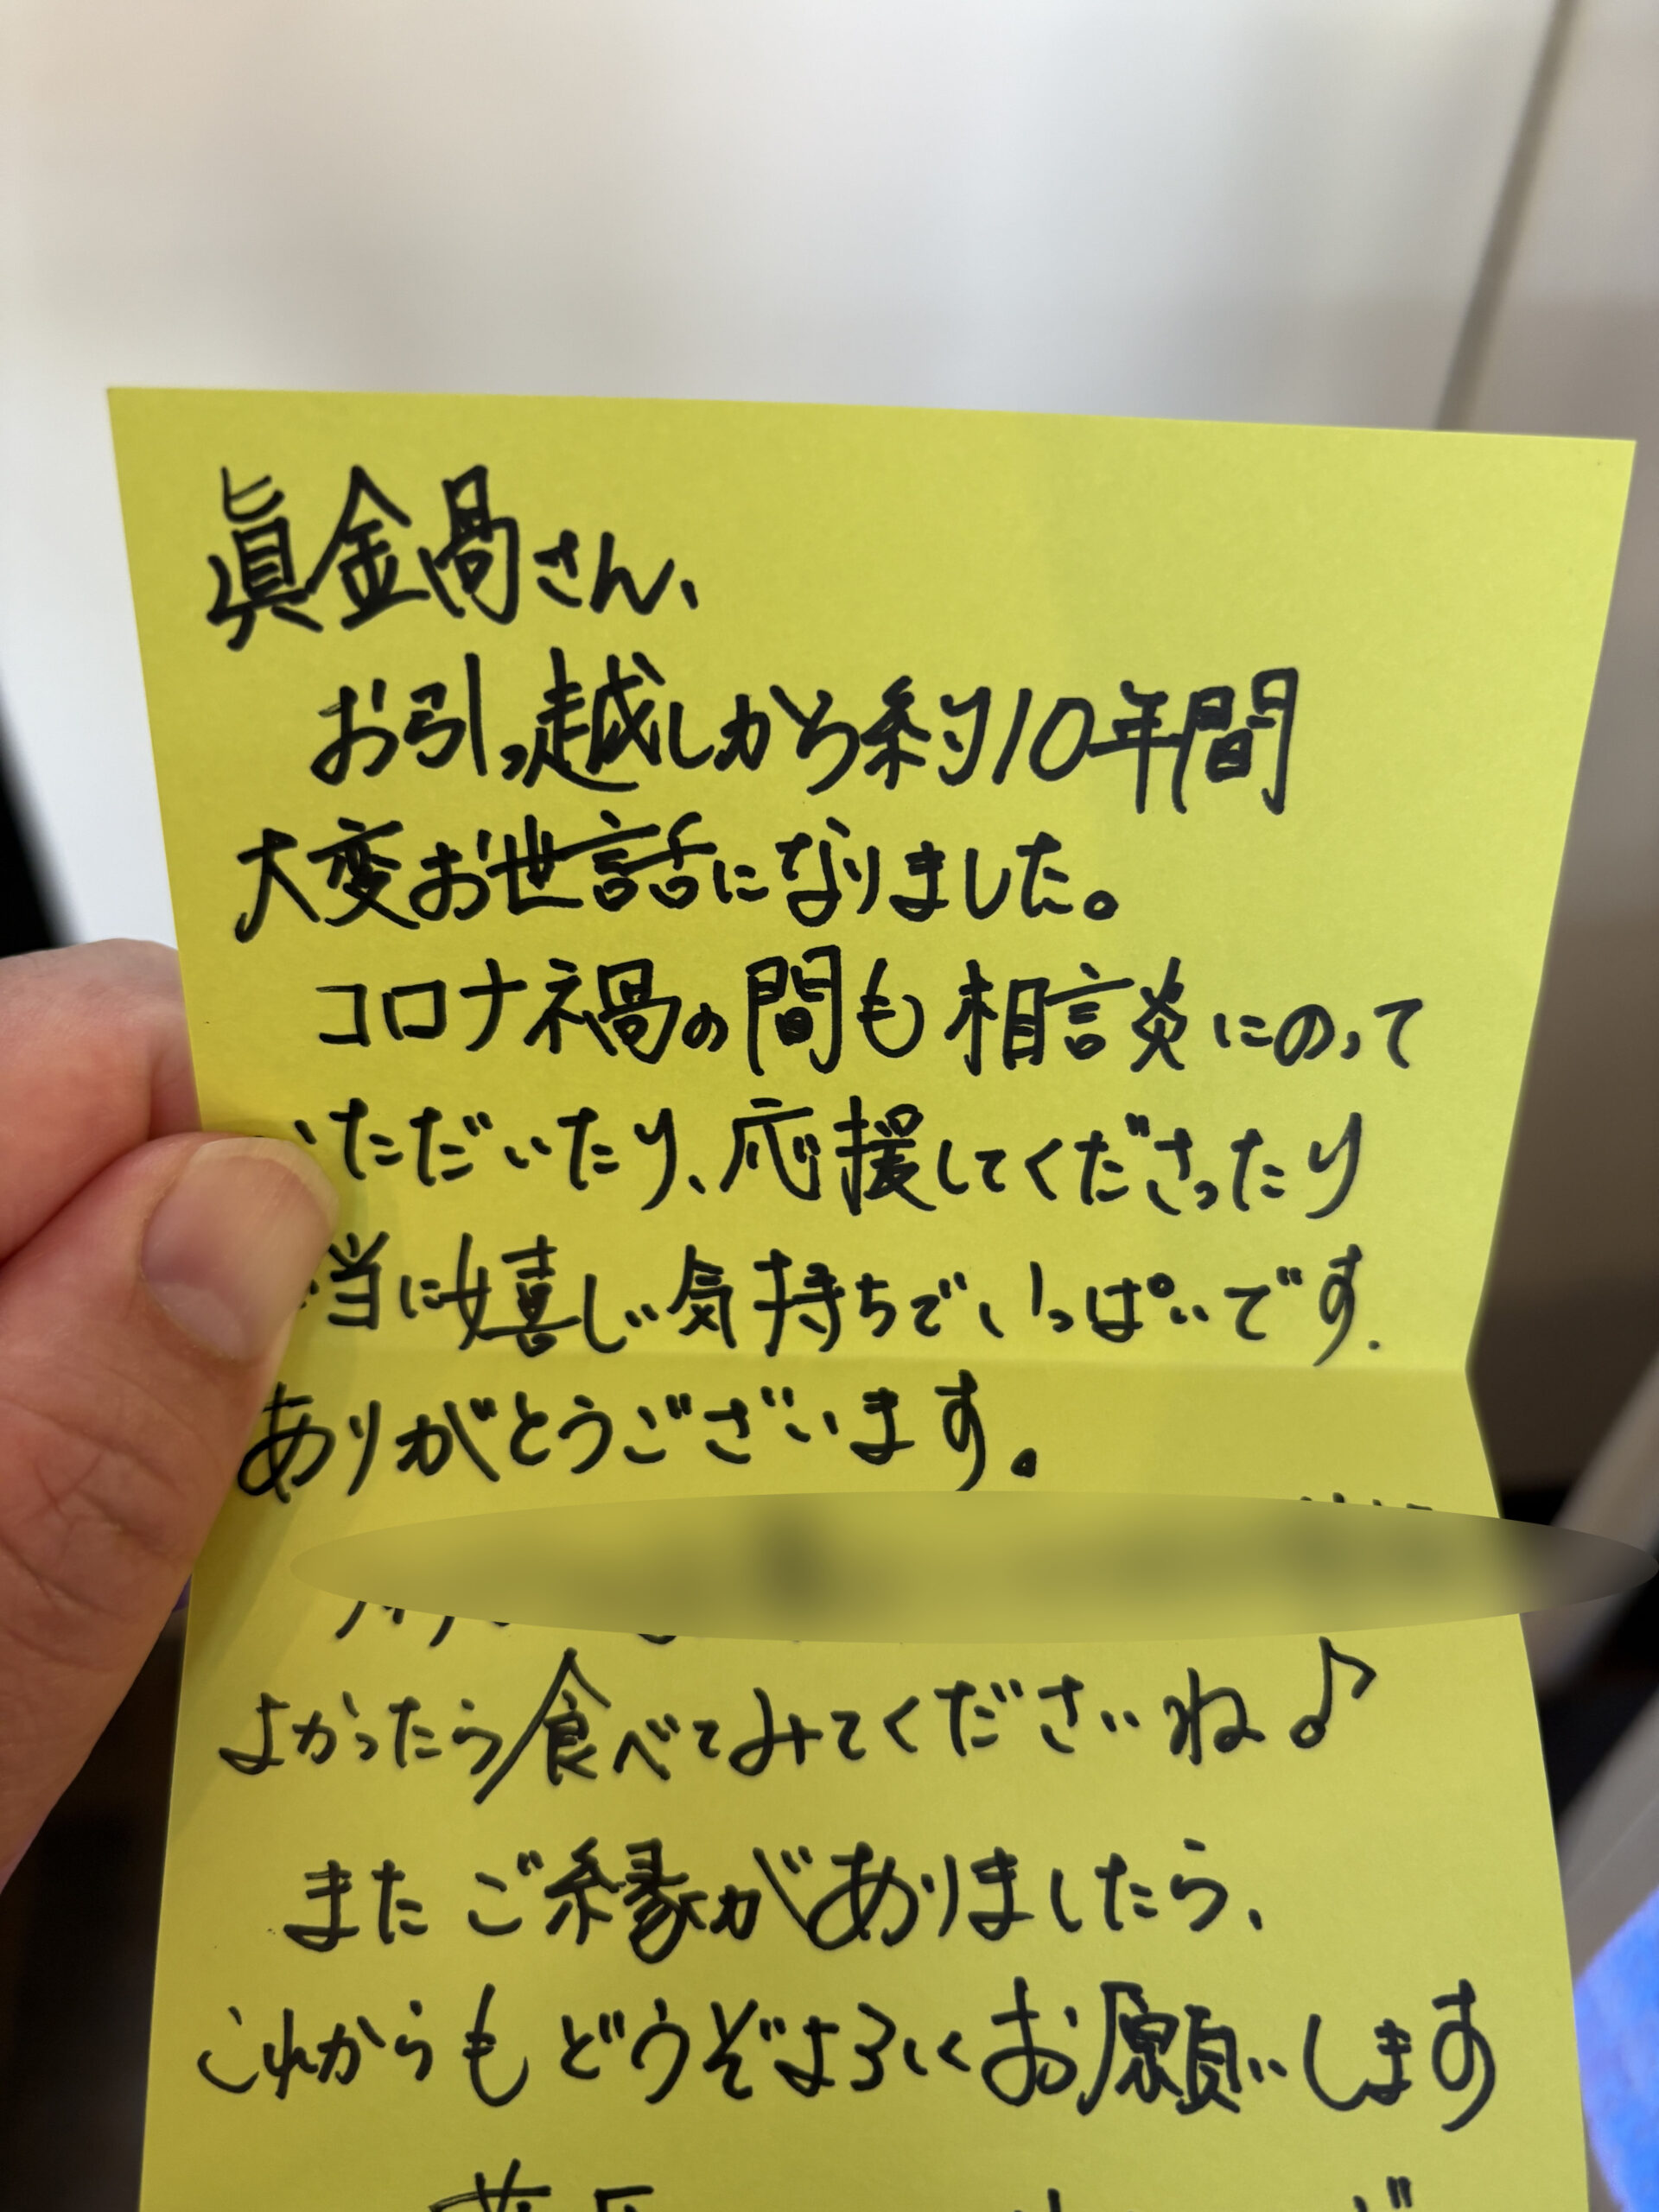 眞鍋さん、
お引っ越しから約10年間
大変お世話になりました。
コロナ禍の間も相談にのって
いただいたり、応援してくださったり
当に嬉しい気持ちでいっぱいです.
ありがとうございます。
よかったら食べてみてくださいね♪
またご縁がありましたら、
これからもどうぞよろしくお願いします